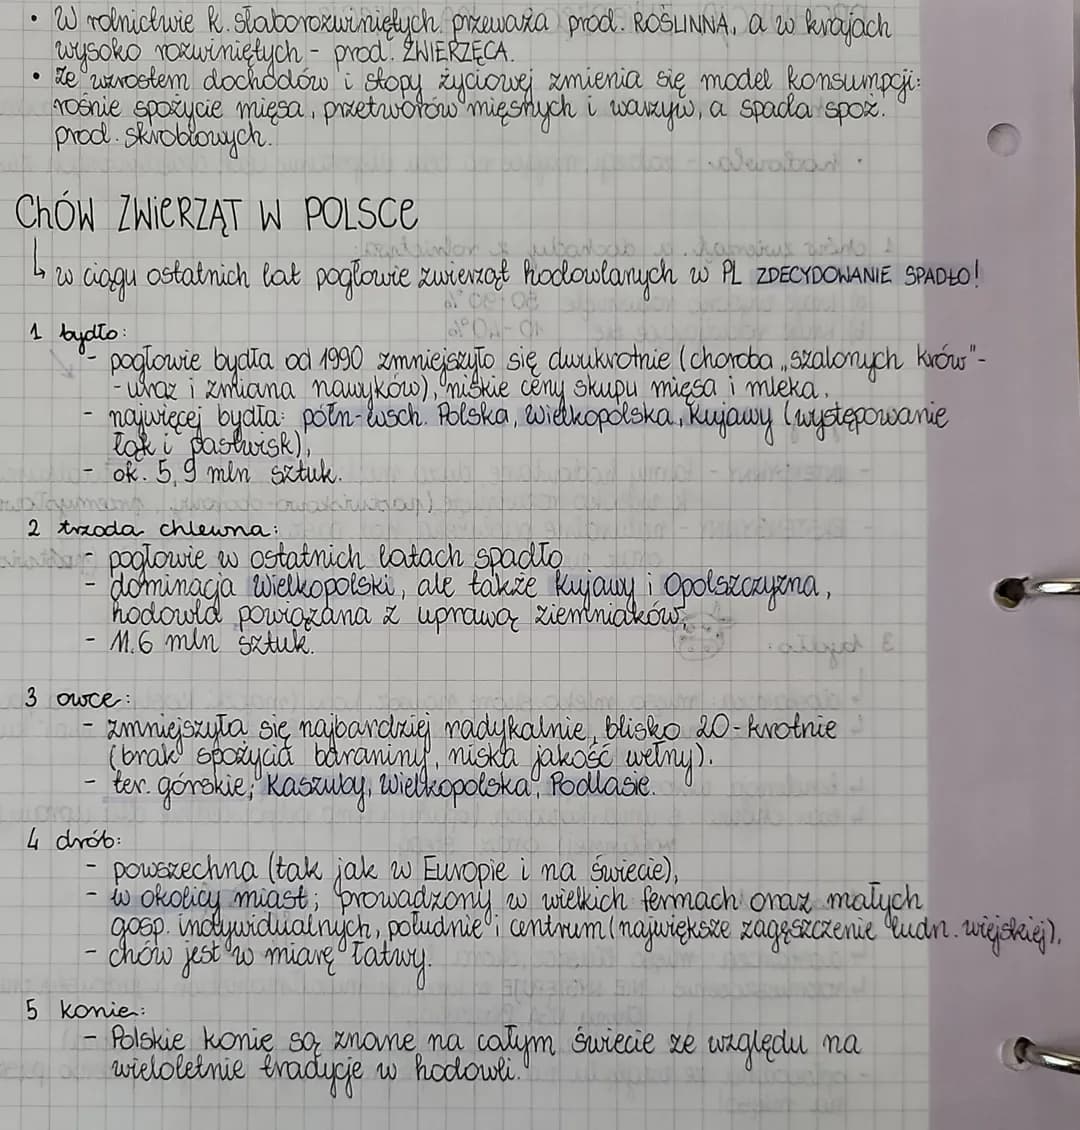 • W rolnictwie k. słaborozwiniętych przeważa prod. ROŚLINNA, a w krajach
wysoko rozwiniętych - prod. ZWIERZĘCA.
• Ze wzrostem dochodów i stopy życiowej zmienia się model konsumpcji:
rośnie spożycie mięsa, przetworów mięsnych i warzyw, a spada spoż.
prod. skrobiowych.
CHÓW ZWIERZĄT W POLSCE
↳ w ciągu ostatnich lat pogłowie zwierząt hodowlanych w PL ZDECYDOWANIE SPADŁO!
1 bydło:
- pogłowie bydła od 1990 zmniejszyło się dwukrotnie (choroba „szalonych krów"-
- uraz i zmiana nawyków), niskie ceny skupu mięsa i mleka,
- najwięcej bydła: półn-wsch. Polska, Wielkopolska, Kujawy (występowanie
łąk i pastwisk),
- ok. 5,9 mln sztuk.
2 trzoda chlewna:
- pogłowie w ostatnich latach spadło
- dominacja Wielkopolski, ale także Kujawy i Opolszczyzna,
hodowla powiązana z uprawą ziemniaków,
- 11.6 mln sztuk.
3 owce:
- zmniejszyła się najbardziej radykalnie, blisko 20-krotnie
(brak spożycia baraniny, niska jakość wełny).
- ter. górskie; Kaszuby, Wielkopolska, Podlasie.
4 drób:
- powszechna (tak jak w Europie i na świecie),
- w okolicy miast; prowadzony w wielkich fermach oraz małych
gosp. indywidualnych, południe i centrum (największe zagęszczenie ludn. wiejskiej),
- chów jest w miarę łatwy.
5 konie:
- Polskie konie są znane na całym świecie ze względu na
wieloletnie tradycje w hodowli.